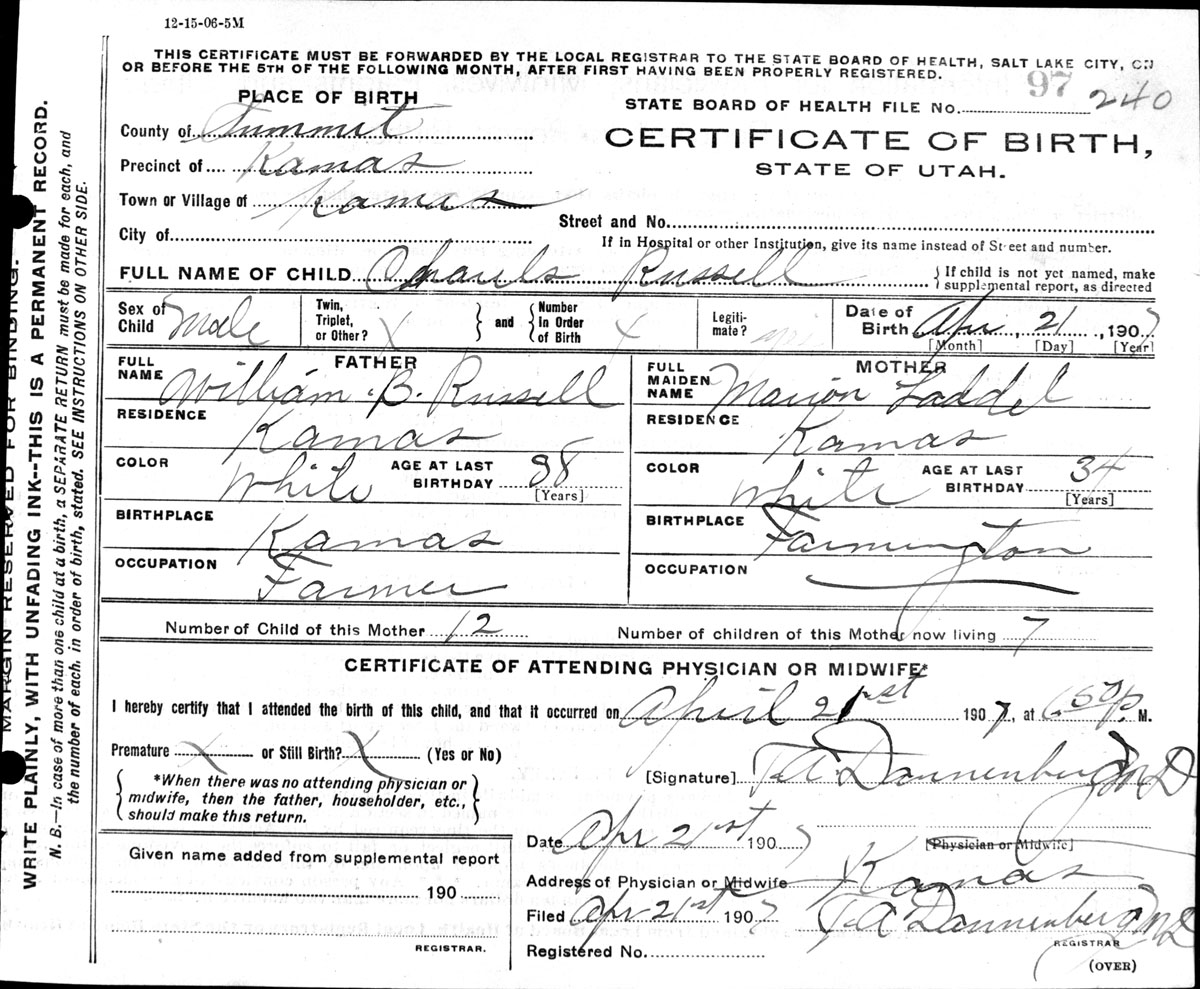 12-15-06-5M
THIS CERTIFICATE MUST BE FORWARDED BY THE LOCAL REGISTRAR TO THE STATE BOARD OF HEALTH, SALT LAKE CITY, ON
OR BEFORE THE 5TH OF THE FOLLOWING MONTH, AFTER FIRST HAVING BEEN PROPERLY REGISTERED.
PLACE OF BIRTH
STATE BOARD OF HEALTH FILE No. 97 240
County of Summit
CERTIFICATE OF BIRTH,
Precinct of Kamas
STATE OF UTAH.
Town or Village of Kamas
Street and No.
City of
If in Hospital or other Institution, give its name instead of Street and number.
FULL NAME OF CHILD Charuls Russell
If child is not yet named, make
supplemental report, as directed
Sex of Child Male
Twin, Triplet, or Other? X
and
Number in Order of Birth X
Legiti-mate?
Date of Birth Apr, 21, 1907
[Month] [Day] [Year]
FATHER
FULL NAME William B. Russell
MOTHER
FULL MAIDEN NAME Marion Laddel
RESIDENCE Kamas
RESIDENCE Kamas
COLOR White AGE AT LAST BIRTHDAY 38 [Years]
COLOR White AGE AT LAST BIRTHDAY 34 [Years]
BIRTHPLACE Kamas
BIRTHPLACE Farmington
OCCUPATION Farmer
OCCUPATION
Number of Child of this Mother 12 Number of children of this Mother now living 7
CERTIFICATE OF ATTENDING PHYSICIAN OR MIDWIFE*
I hereby certify that I attended the birth of this child, and that it occurred on April 21st 1907, at 6 50 P. M.
Premature X or Still Birth? X (Yes or No)
*When there was no attending physician or
midwife, then the father, householder, etc.,
should make this return.
[Signature] T.A. Dannenberg MD
Date Apr 21st 1907
[Physician or Midwife]
Given name added from supplemental report
190
Address of Physician or Midwife Kamas
Filed Apr 21st 1907 T.A. Dannenberg MD
REGISTRAR
REGISTRAR.
Registered No.
(OVER)
MARGIN RESERVED FOR BINDING.
WRITE PLAINLY, WITH UNFADING INK--THIS IS A PERMANENT RECORD.
N. B.—In case of more than one child at a birth, a SEPARATE RETURN must be made for each, and
the number of each, in order of birth, stated. SEE INSTRUCTIONS ON OTHER SIDE.